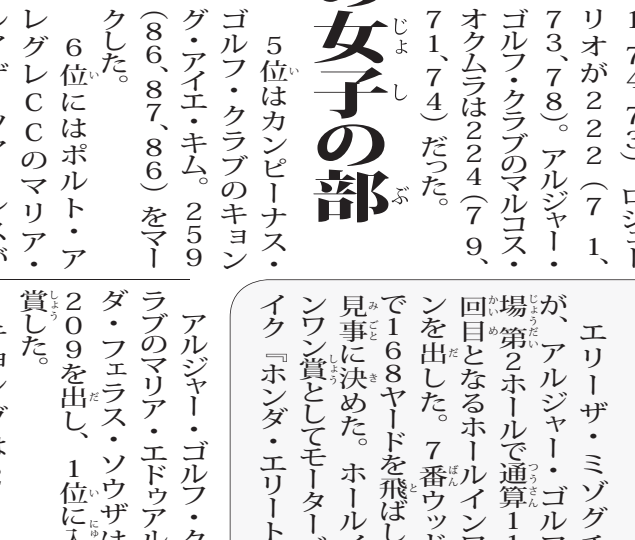 リオが222（71、
73、78）。アルジャー・
ゴルフ・クラブのマルコス・
オクムラは224（79、
71、74）だった。
女子の部
5位はカンピーナス・
ゴルフ・クラブのキョン
グ・アイエ・キム。259
（86、87、86）をマー
クした。
6位にはポルト・ア
レグレCCのマリア・
エリーザ・ミゾグチ
が、アルジャー・ゴルフ
場第2ホールで通算1
回目となるホールインワ
ンを出した。7番ウッド
で168ヤードを飛ばし
見事に決めた。ホールイ
ンワン賞としてモーター
イク『ホンダ・エリート
アルジャー・ゴルフ・ク
ラブのマリア・エドゥアル
ダ・フェラス・ソウザは
209を出し、1位に入
賞した。